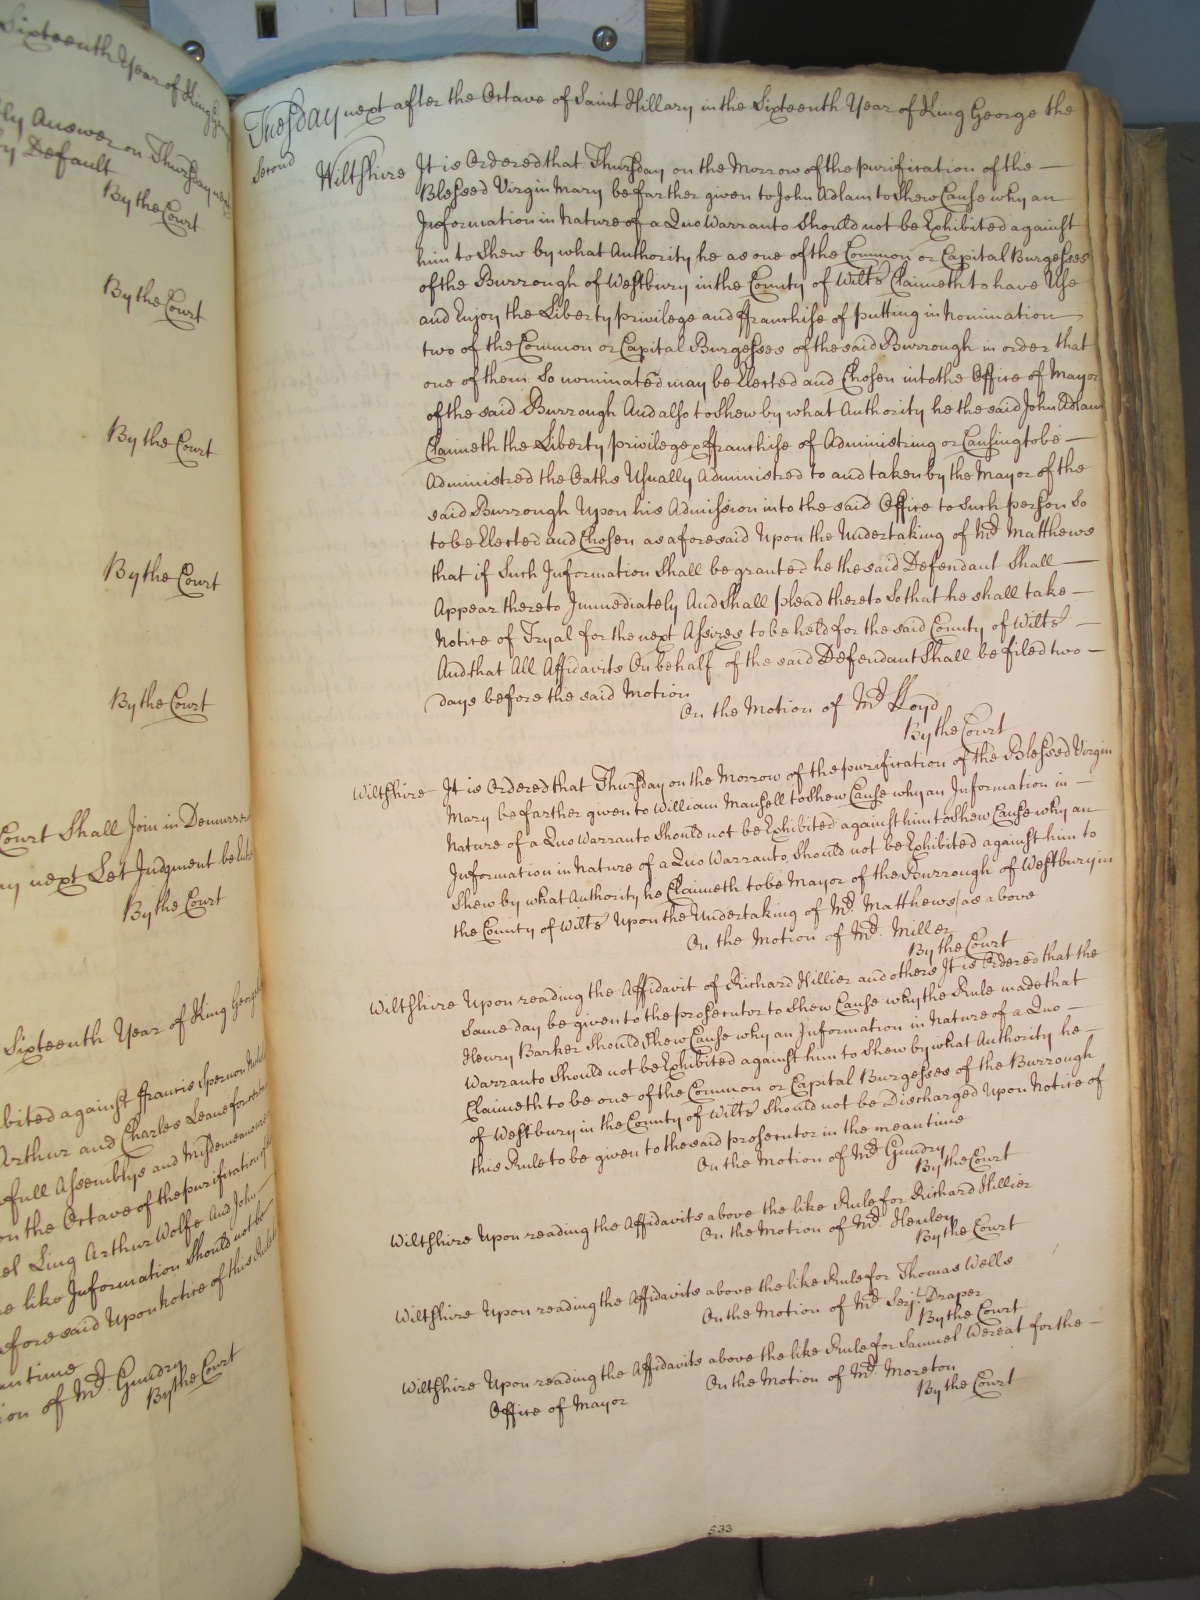 Sixteenth Year of King
Answer on Thursday next
by Default
By the Court
By the Court
By the Court
By the Court
By the Court
Court Shall Join in Demurrer
next Let Judgment be
By the Court
Sixteenth Year of King George
against ffrancis
Arthur and Charles Leane for
full Assemblys and Misdemeanours
on the Octave of the purification of
Ling Arthur Wolfe And John
like Information Should not be
aforesaid Upon Notice of this Rule
of Mr. Gundry
By the Court
Tuesday next after the Octave of Saint Hillary in the Sixteenth Year of King George the
Second
Wiltshire It is Ordered that Thursday on the Morrow of the purification of the
Blessed Virgin Mary be farther given to John Adlam to Shew Cause why an
Information in Nature of a Quo Warranto Should not be Exhibited against
him to Shew by what Authority he as one of the Common or Capital Burgesses
of the Burrough of Westbury in the County of Wilts Claimeth to have Use
and Enjoy the Liberty privilege and ffranchise of putting in Nomination
two of the Common or Capital Burgesses of the said Burrough in order that
one of them So nominated may be Elected and Chosen into the Office of Mayor
of the said Burrough And also to Shew by what Authority he the said John Adlam
Claimeth the Liberty privilege & ffranchise of Administring or Causing to be
Administred the Oaths Usually Administred to and taken by the Mayor of the
said Burrough Upon his Admission into the said Office to Such person So
to be Elected and Chosen as aforesaid Upon the Undertaking of Mr. Matthews
that if Such Information Shall be granted he the said Defendant Shall
Appear thereto Immediately And Shall plead thereto So that he shall take
Notice of Tryal for the next Assizes to be held for the said County of Wilts
And that All Affidavits On behalf of the said Defendant Shall be filed two
days before the said Motion
On the Motion of Mr. Lloyd
By the Court
Wiltshire It is Ordered that Thursday on the Morrow of the purification of the Blessed Virgin
Mary be farther given to William Mansell to Shew Cause why an Information in
Nature of a Quo Warranto Should not be Exhibited against him to Shew Cause why an
Information in Nature of a Quo Warranto Should not be Exhibited against him to
Shew by what Authority he Claimeth to be Mayor of the Burrough of Westbury in
the County of Wilts Upon the Undertaking of Mr. Matthews / as above
On the Motion of Mr. Miller
By the Court
Wiltshire Upon reading the Affidavit of Richard Hillier and others It is Ordered that the
Same day be given to the prosecutor to Shew Cause why the Rule made that
Henry Barker Should Shew Cause why an Information in Nature of a Quo
Warranto Should not be Exhibited against him to Shew by what Authority he
Claimeth to be one of the Common or Capital Burgesses of the Burrough
of Westbury in the County of Wilts Should not be Discharged Upon Notice of
this Rule to be given to the said prosecutor in the mean time
On the Motion of Mr. Gundry
By the Court
Wiltshire Upon reading the Affidavits above the like Rule for Richard Hillier
On the Motion of Mr. Henley
By the Court
Wiltshire Upon reading the Affidavits above the like Rule for Thomas Wells
On the Motion of Mr. Serjt. Draper
By the Court
Wiltshire Upon reading the Affidavits above the like Rule for Samuel Wereat for the
Office of Mayor
On the Motion of Mr. Moreton
By the Court
533